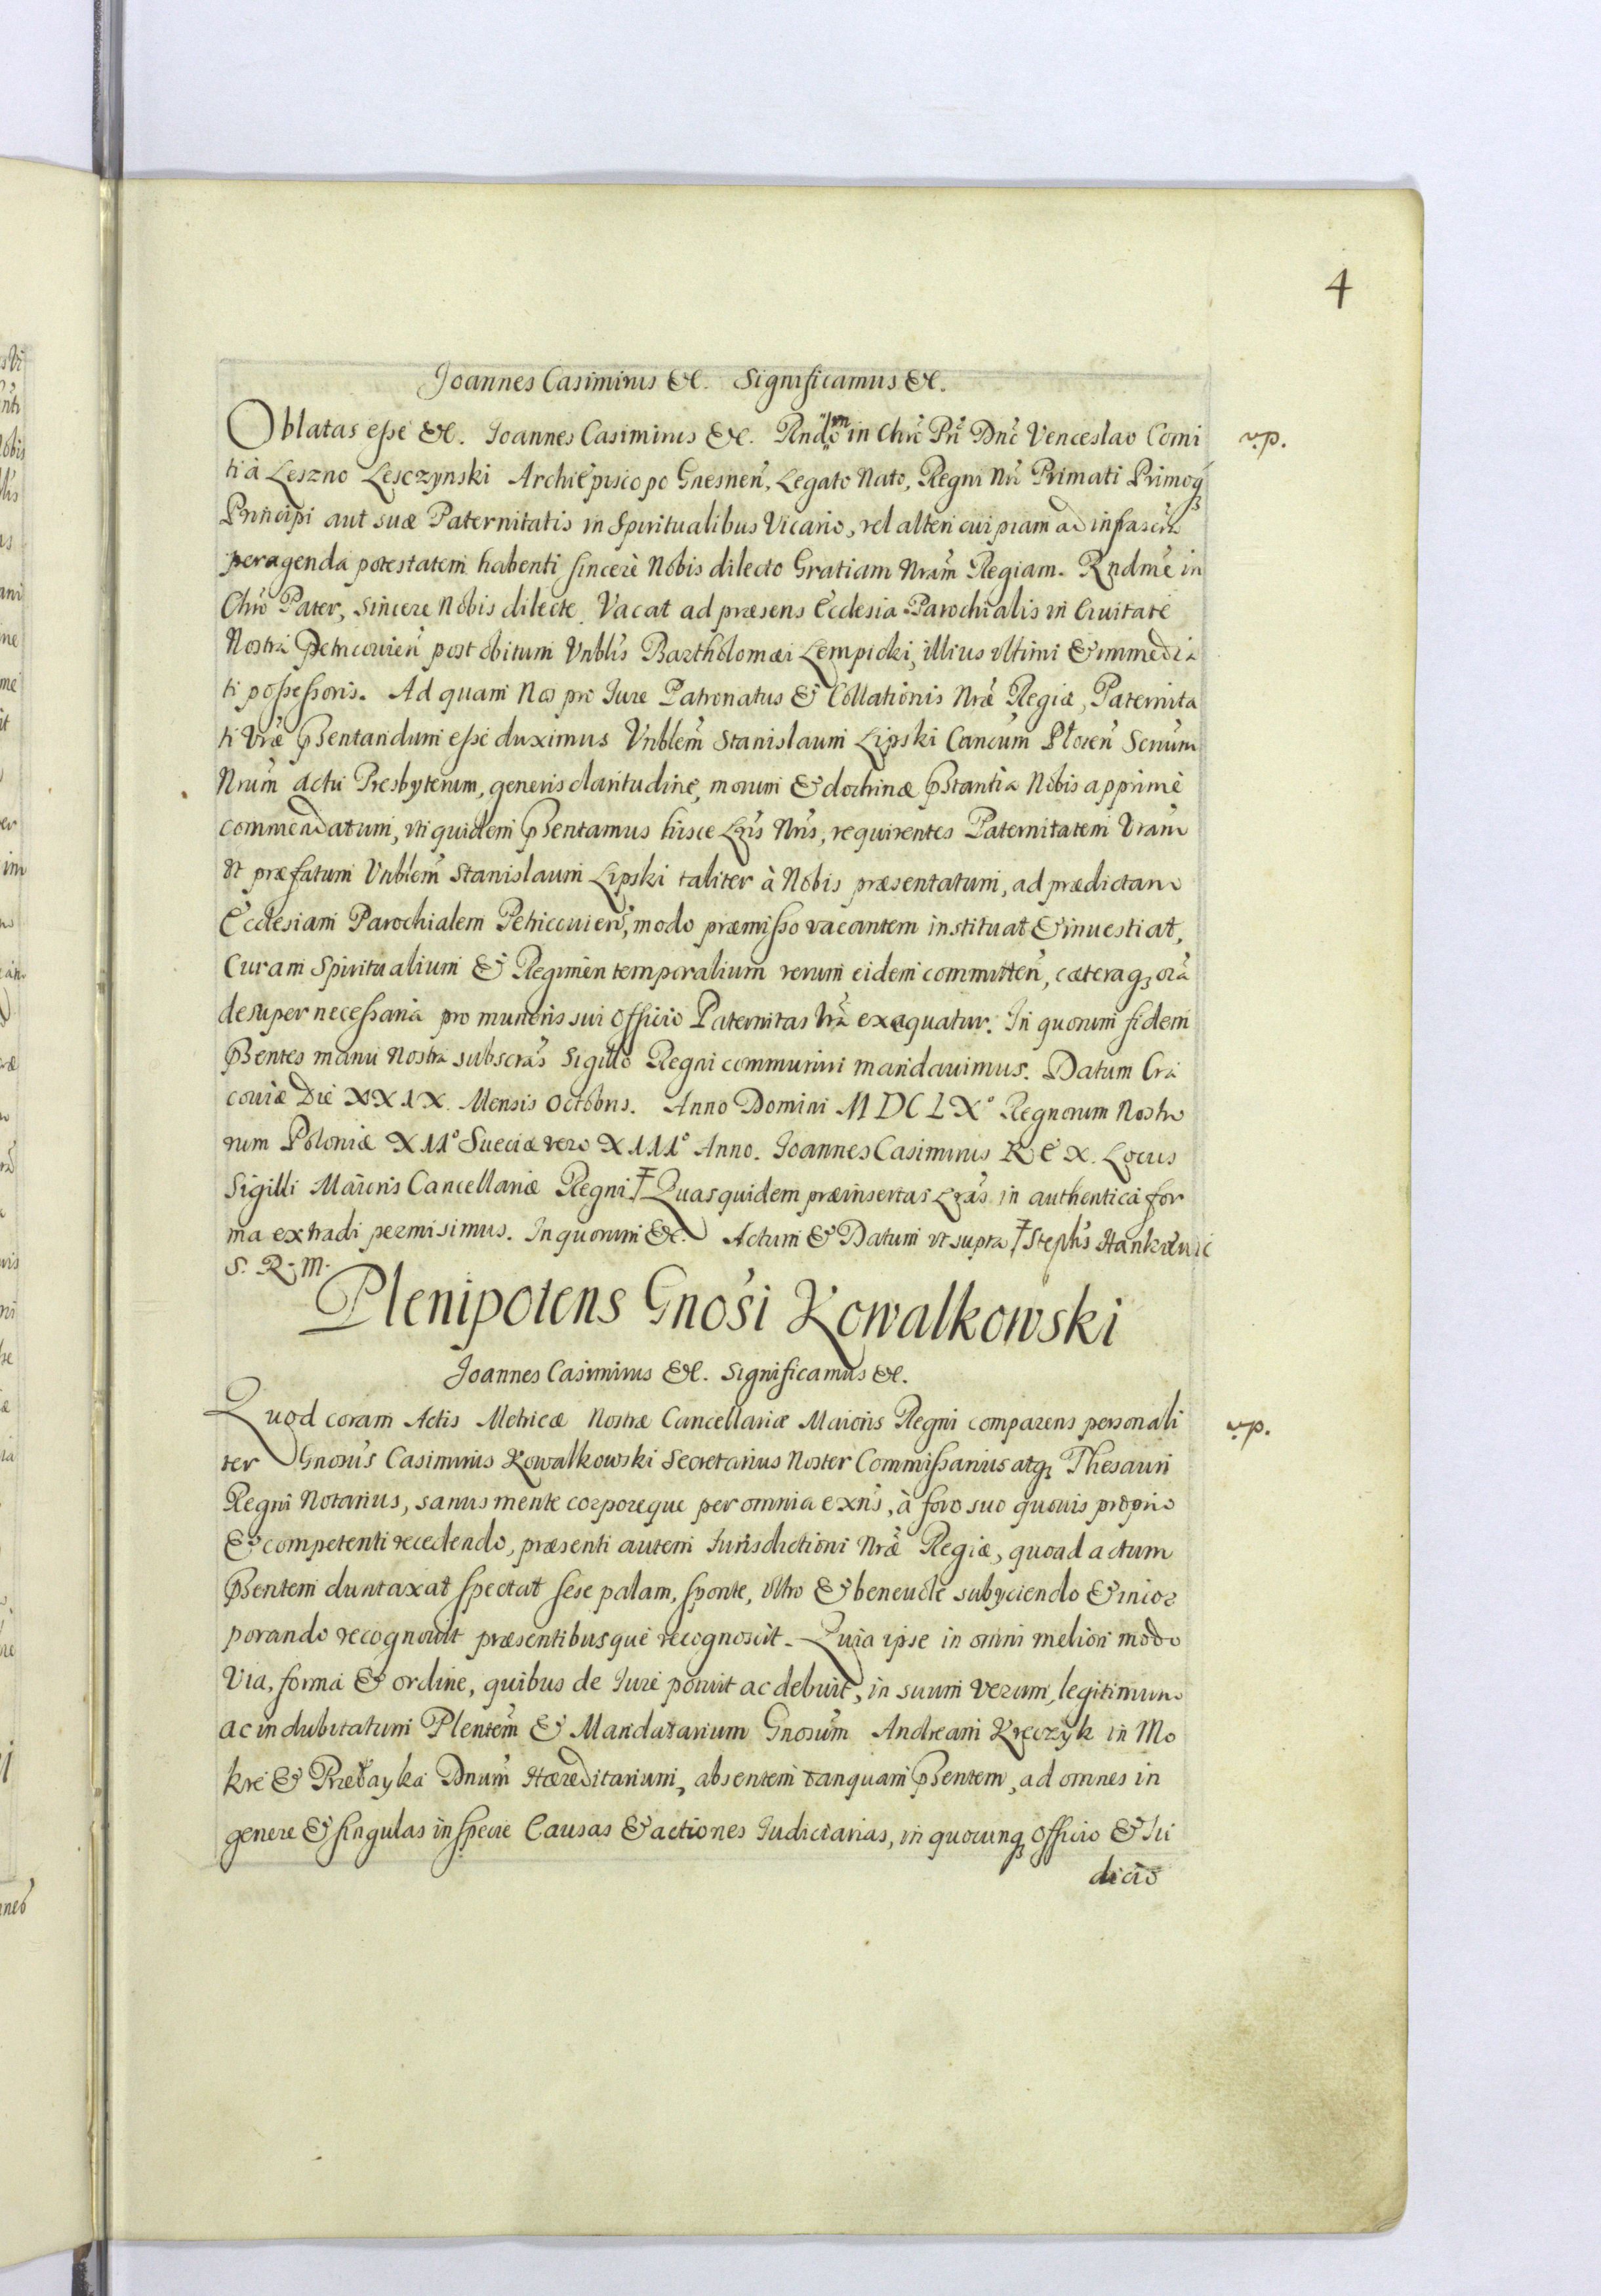 4
Joannes Casimirus &c. Significamus &c.
Oblatas esse &c. Joannes Casimirus &c. Rndo in Chro Pri Dno Venceslao Comi
v.p.
ti à Leszno Lesczynski Archiepiscopo Gnesnen, Legato Nato, Regni Nri Primati Primoq
Principi aut suæ Paternitatis in Spiritualibus Vicario, vel alteri cuipiam ad infrascta
peragenda potestatem habenti sincerè Nobis dilecto Gratiam Nram Regiam. Rndme in
Chro Pater, sincere Nobis dilecte. Vacat ad præsens Ecclesia Parochialis in Civitate
Nostra Petricovien post obitum Vnblis Bartholomæi Lempicki, illius vltimi & immedia
ti possessoris. Ad quam Nos pro Jure Patronatus & Collationis Nræ Regiæ, Paternita
ti Vræ pßentandum esse duximus Vnblem Stanislaum Lipski Cancum Płocen Scrium
Nrum actu Presbyterum, generis claritudine, morum & doctrinæ pstantia Nobis apprimè
commendatum, vti quidem pßentamus hisce Lris Nris, requirentes Paternitatem Vram
vt præfatum Vnblem Stanislaum Lipski taliter à Nobis præsentatum, ad prædictam
Ecclesiam Parochialem Petricovien, modo præmisso vacantem instituat & inuestiat,
Curam Spiritualium & Regimen temporalium rerum eidem committen, cæteraq ora
desuper necessaria pro muneris sui officio Paternitas Vra exequatur. In quorum fidem
pßentes manu Nostra subscras Sigillo Regni communiri mandauimus. Datum Cra
couiæ Die XXIX. Mensis Octobris. Anno Domini MDCLX° Regnorum Nostro
rum Poloniæ XII° Sueciæ vero XIII° Anno. Joannes Casimirus REX. Locus
Sigilli Maioris Cancellariæ Regni Quas quidem præinsertas Lras in authentica for
ma extradi permisimus. In quorum &c. Actum & Datum vt supra Stephs Hankiewic
S. R. M.
Plenipotens Gnosi Kowalkowski
Joannes Casimirus &c. Significamus &c.
Quod coram Actis Metricæ Nostræ Cancellariæ Maioris Regni comparens personali
v.p.
ter Gnosus Casimirus Kowalkowski Secretarius Noster Commissarius atq Thesauri
Regni Notarius, sanus mente corporeque per omnia exns, à foro suo quouis proprio
& competenti recedendo, præsenti autem Jurisdictioni Nræ Regiæ, quoad actum
pßentem duntaxat spectat sese palam, sponte, vltro & beneuole subyciendo & incor
porando recognouit præsentibusque recognoscit. Quia ipse in omni meliori modo
Via, forma & ordine, quibus de Jure potuit ac debuit, in suum verum, legitimum
ac indubitatum Plentem & Mandatarium Gnosum Andream Kręczyk in Mo
kre & Przełayka Dnum Hæreditarium, absentem tanquam pßentem, ad omnes in
genere & singulas in specie Causas & actiones Judiciarias, in quocunq officio & Ju
dicio